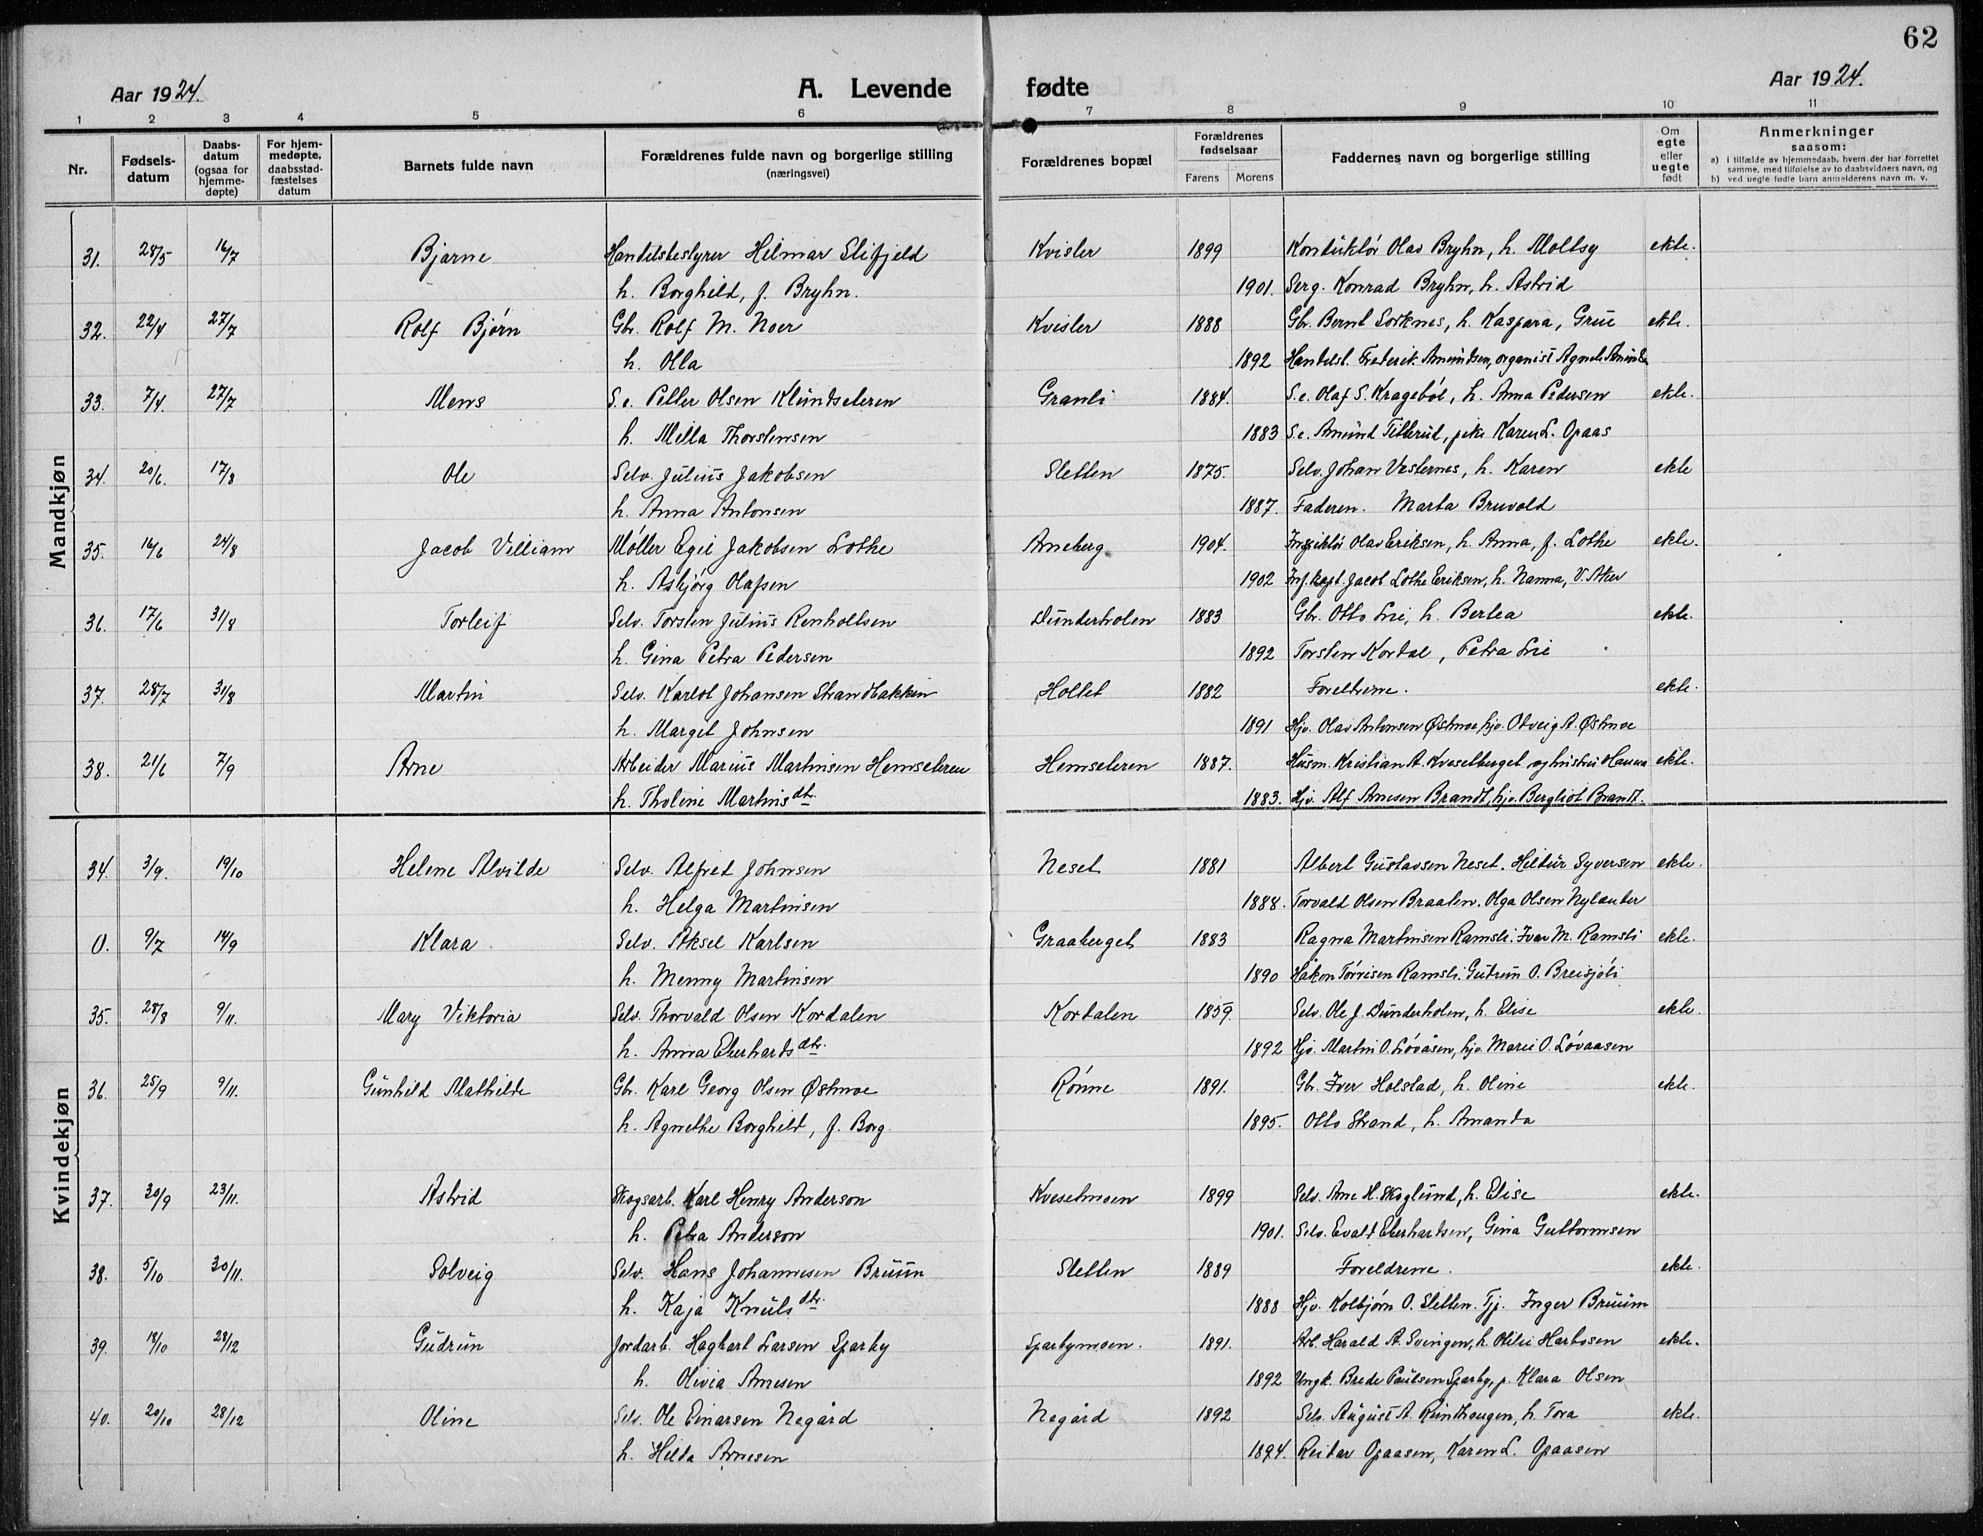 62
Aar 1924.
A. Levende fødte
Aar 1924.
1 2 3 4 5 6 7 8 9 10 11
Nr.
Fødsels-
datum
Daabs-
datum
(ogsaa for
hjemme-
døpte)
For hjem-
medøpte,
daabsstad-
fæstelses
datum
Barnets fulde navn
Forældrenes fulde navn og borgerlige stilling
(næringsvei)
Forældrenes bopæl
Forældrenes
fødselsaar
Farens Morens
Faddernes navn og borgerlige stilling
Om
egte
eller
uegte
født
Anmerkninger
saasom:
a) i tilfælde av hjemmedaab, hvem der har forrettet
samme, med tilføielse av to daabsvidners navn, og
b) ved uegte fødte barn anmelderens navn m. v.
Mandkjøn
31. 28/5 16/7 Bjarne Handelsbestyrer Hilmar Slifjeld Kvisler 1899 Konduktør Olav Bryhn, h. Moltsy ekte.
h. Borghild, f. Bryhn. 1901. Serg. Konrad Bryhn, h. Astrid
32. 22/4 27/7 Rolf Bjørn Gbr. Rolf M. Noer Kvisler 1888 Gbr. Bernt Sorknes, h. Kaspara, Grue ekte.
h. Olla 1892 Handelsb. Frederik Amundsen, organist Agnes
33. 7/4. 27/7 Mens S.e. Petter Olsen Klundseteren Granli 1884. S.e. Olaf S. Kragebøl, h. Anna Pedersen ekte.
h. Milla Thorstensen 1883 S.e. Amund Titterud, pike Karen L. Opaas
34. 20/6. 17/8 Ole Selv. Julius Jakobsen Sletten 1875. Selv. Johan Vesternes, h. Karen ekte
h. Anna Antonsen 1887. Faderen. Marta Bruvold
35. 16/6 24/8 Jacob Villiam Møller Egil Jakobsen Lothe Arneberg 1904. Olav Eriksen, h. Anna, f. Lothe ekte.
h. Asbjørg Olafsen 1902 Inf. kapt. Jacob Lothe Eriksen, h. Nanna, V. Aker
36. 17/6 31/8 Torleif Selv. Torsten Julius Renholtsen Dunderholen 1883 Gbr. Otto Lie, h. Bertea ekte.
h. Gina Petra Pedersen 1892 Torsten Kordal, Petra Lie
37. 28/7 31/8 Martin Selv. Karlot Johansen Strandbakken Holtet 1882 Foreldrene. ekte.
h. Margit Johnsen 1891 Hjv. Olav Antonsen Østmoe, hjv. Olveig A. Østmoe
38. 21/6 7/9 Arne Arbeider Marius Martinsen Hemseteren Hemseteren 1887. Husm. Kristian A. Kveselberget og hustru Hanna ekte.
h. Tholine Martinsdtr. 1883. Hjv. Alf Arnesen Brandt, hjv. Bergliot Brandt.
Kvindekjøn
34. 3/9. 19/10 Helene Alvilde Selv. Alfred Johnsen Neset 1881 Albert Gustavsen Neset. Hildur Syversen ekte.
h. Helga Martinsen 1888. Torvald Olsen Braaten. Olga Olsen Nylander
0. 9/7 14/9 Klara Selv. Aksel Karlsen Graaberget 1883 Ragna Martinsen Ramsli. Ivar M. Ramsli ekte.
h. Menny Martinsen 1890 Håken Tørrisen Ramsli. Gudrun O. Breisjøli
35. 28/8 9/11. Mary Viktoria Selv. Thorvald Olsen Kordalen Kordalen 1859. Selv. Ole J. Dunderholen, h. Elise ekte.
h. Anna Eberhardsdtr. 1892 Hjv. Martin O. Løvåsen, hjv. Marie O. Løvaasen
36. 25/9 9/11. Gunhild Mathilde Gbr. Karl Georg Olsen Østmoe Rønne 1891. Gbr. Iver Holstad, h. Oline ekte.
h. Agnethe Borghild, f. Borg. 1895. Otto Strand, h. Amanda
37. 30/9 23/11. Astrid Skogsarb. Karl Henry Anderson Kveselmoen 1899 Selv. Arne H. Skoglund, h. Elise ekte.
h. Petra Anderson 1901. Selv. Evald Eberhardsen, Gina Guttormsen
38. 5/10 30/11. Solveig Selv. Hans Johannesen Bruun Sletten 1889 Foreldrene. ekte.
h. Kaja Knutsdtr. 1888 Hjv. Kolbjørn O. Sletten. Tjp. Inger Bruum
39. 18/10 28/12 Gudrun Jordarb. Hagbart Larsen Sparby Sparbymoen. 1891. Arb. Harald A. Svingen, h. Otilie Harbosen ekte.
h. Olivia Arnesen 1892 Ungk. Brede Paulsen Sparby, p. Klara Olsen
40. 20/10 28/12 Oline Selv. Ole Einarsen Negård Negård 1892 Selv. August A. Rundhaugen, h. Tora ekte.
h. Hilda Arnesen 1894. Reidar Opaasen, Karen L. Opaasen